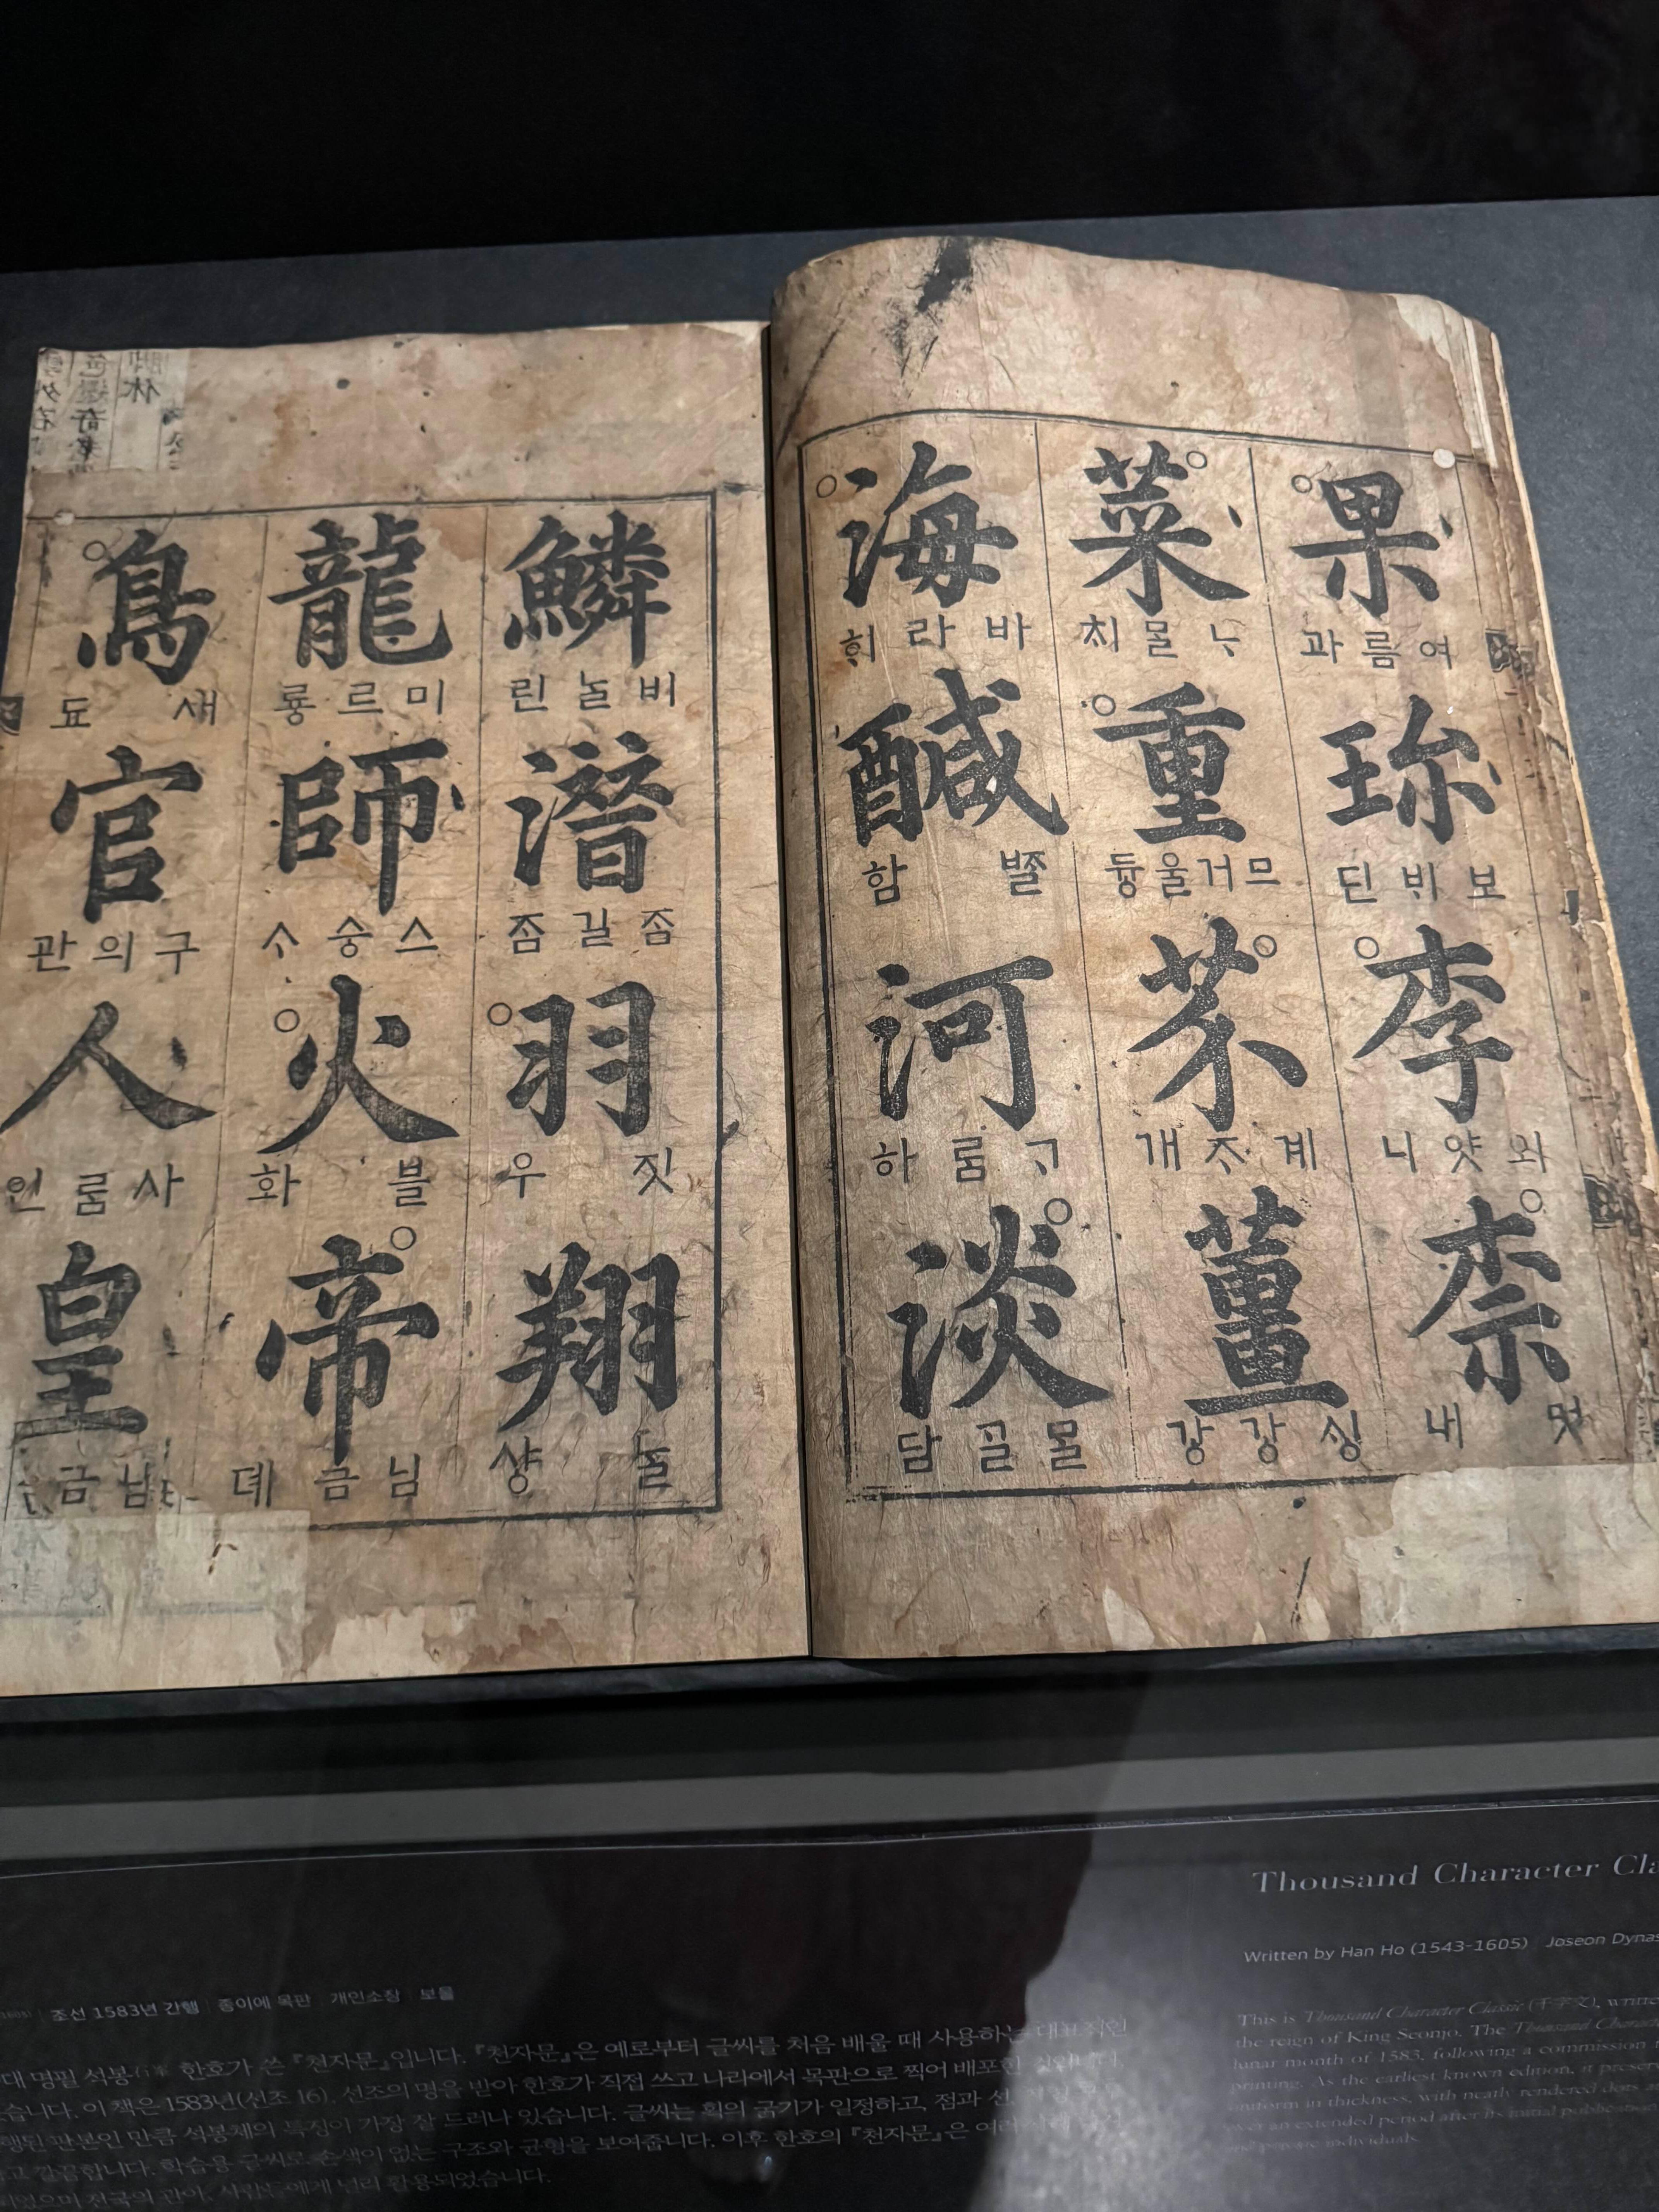 果
여름과
珎
보ᄇᆡ딘
李
와얏니
柰
멋내
菜
ᄂᆞᄆᆞᆯᄎᆡ
重
므거울듕
芥
계ᄌᆞ개
薑
싱강강
海
바라ᄒᆡ
醎
ᄧᆞᆯ함
河
ᄀᆞ룸하
淡
ᄆᆞᆯᄀᆞᆯ담
鱗
비늘린
潛
ᄌᆞᆷ길ᄌᆞᆷ
羽
짓우
翔
ᄂᆞᆯ샹
龍
미르룡
師
스승ᄉᆞ
火
블화
帝
님금뎨
鳥
새됴
官
구의관
人
사ᄅᆞᆷ인
皇
님금
조선 1583년 간행 종이에 목판 개인소장 보물
대 명필 석봉 한호가 쓴 『천자문』입니다. 『천자문』은 예로부터 글씨를 처음 배울 때 사용하는 대표적인
습니다. 이 책은 1583년(선조 16), 선조의 명을 받아 한호가 직접 쓰고 나라에서 목판으로 찍어 배포한 것입니다.
행된 판본인 만큼 석봉체의 특징이 가장 잘 드러나 있습니다. 글씨는 획의 굵기가 일정하고, 점과 선
고 깔끔합니다. 학습용 글씨로 손색이 없는 구조와 균형을 보여줍니다. 이후 한호의 『천자문』은
되었으며 전국의 관아, 서원 등에게 널리 활용되었습니다.
Thousand Character Cla
Written by Han Ho (1543-1605) Joseon Dynas
This is Thousand Character Classic (千字文), writte
the reign of King Seonjo. The Thousand Characte
lunar month of 1583, following a commission
printing. As the earliest known edition, it preserv
uniform in thickness, with neatly rendered dots a
over an extended period after its initial publication
and private individuals.